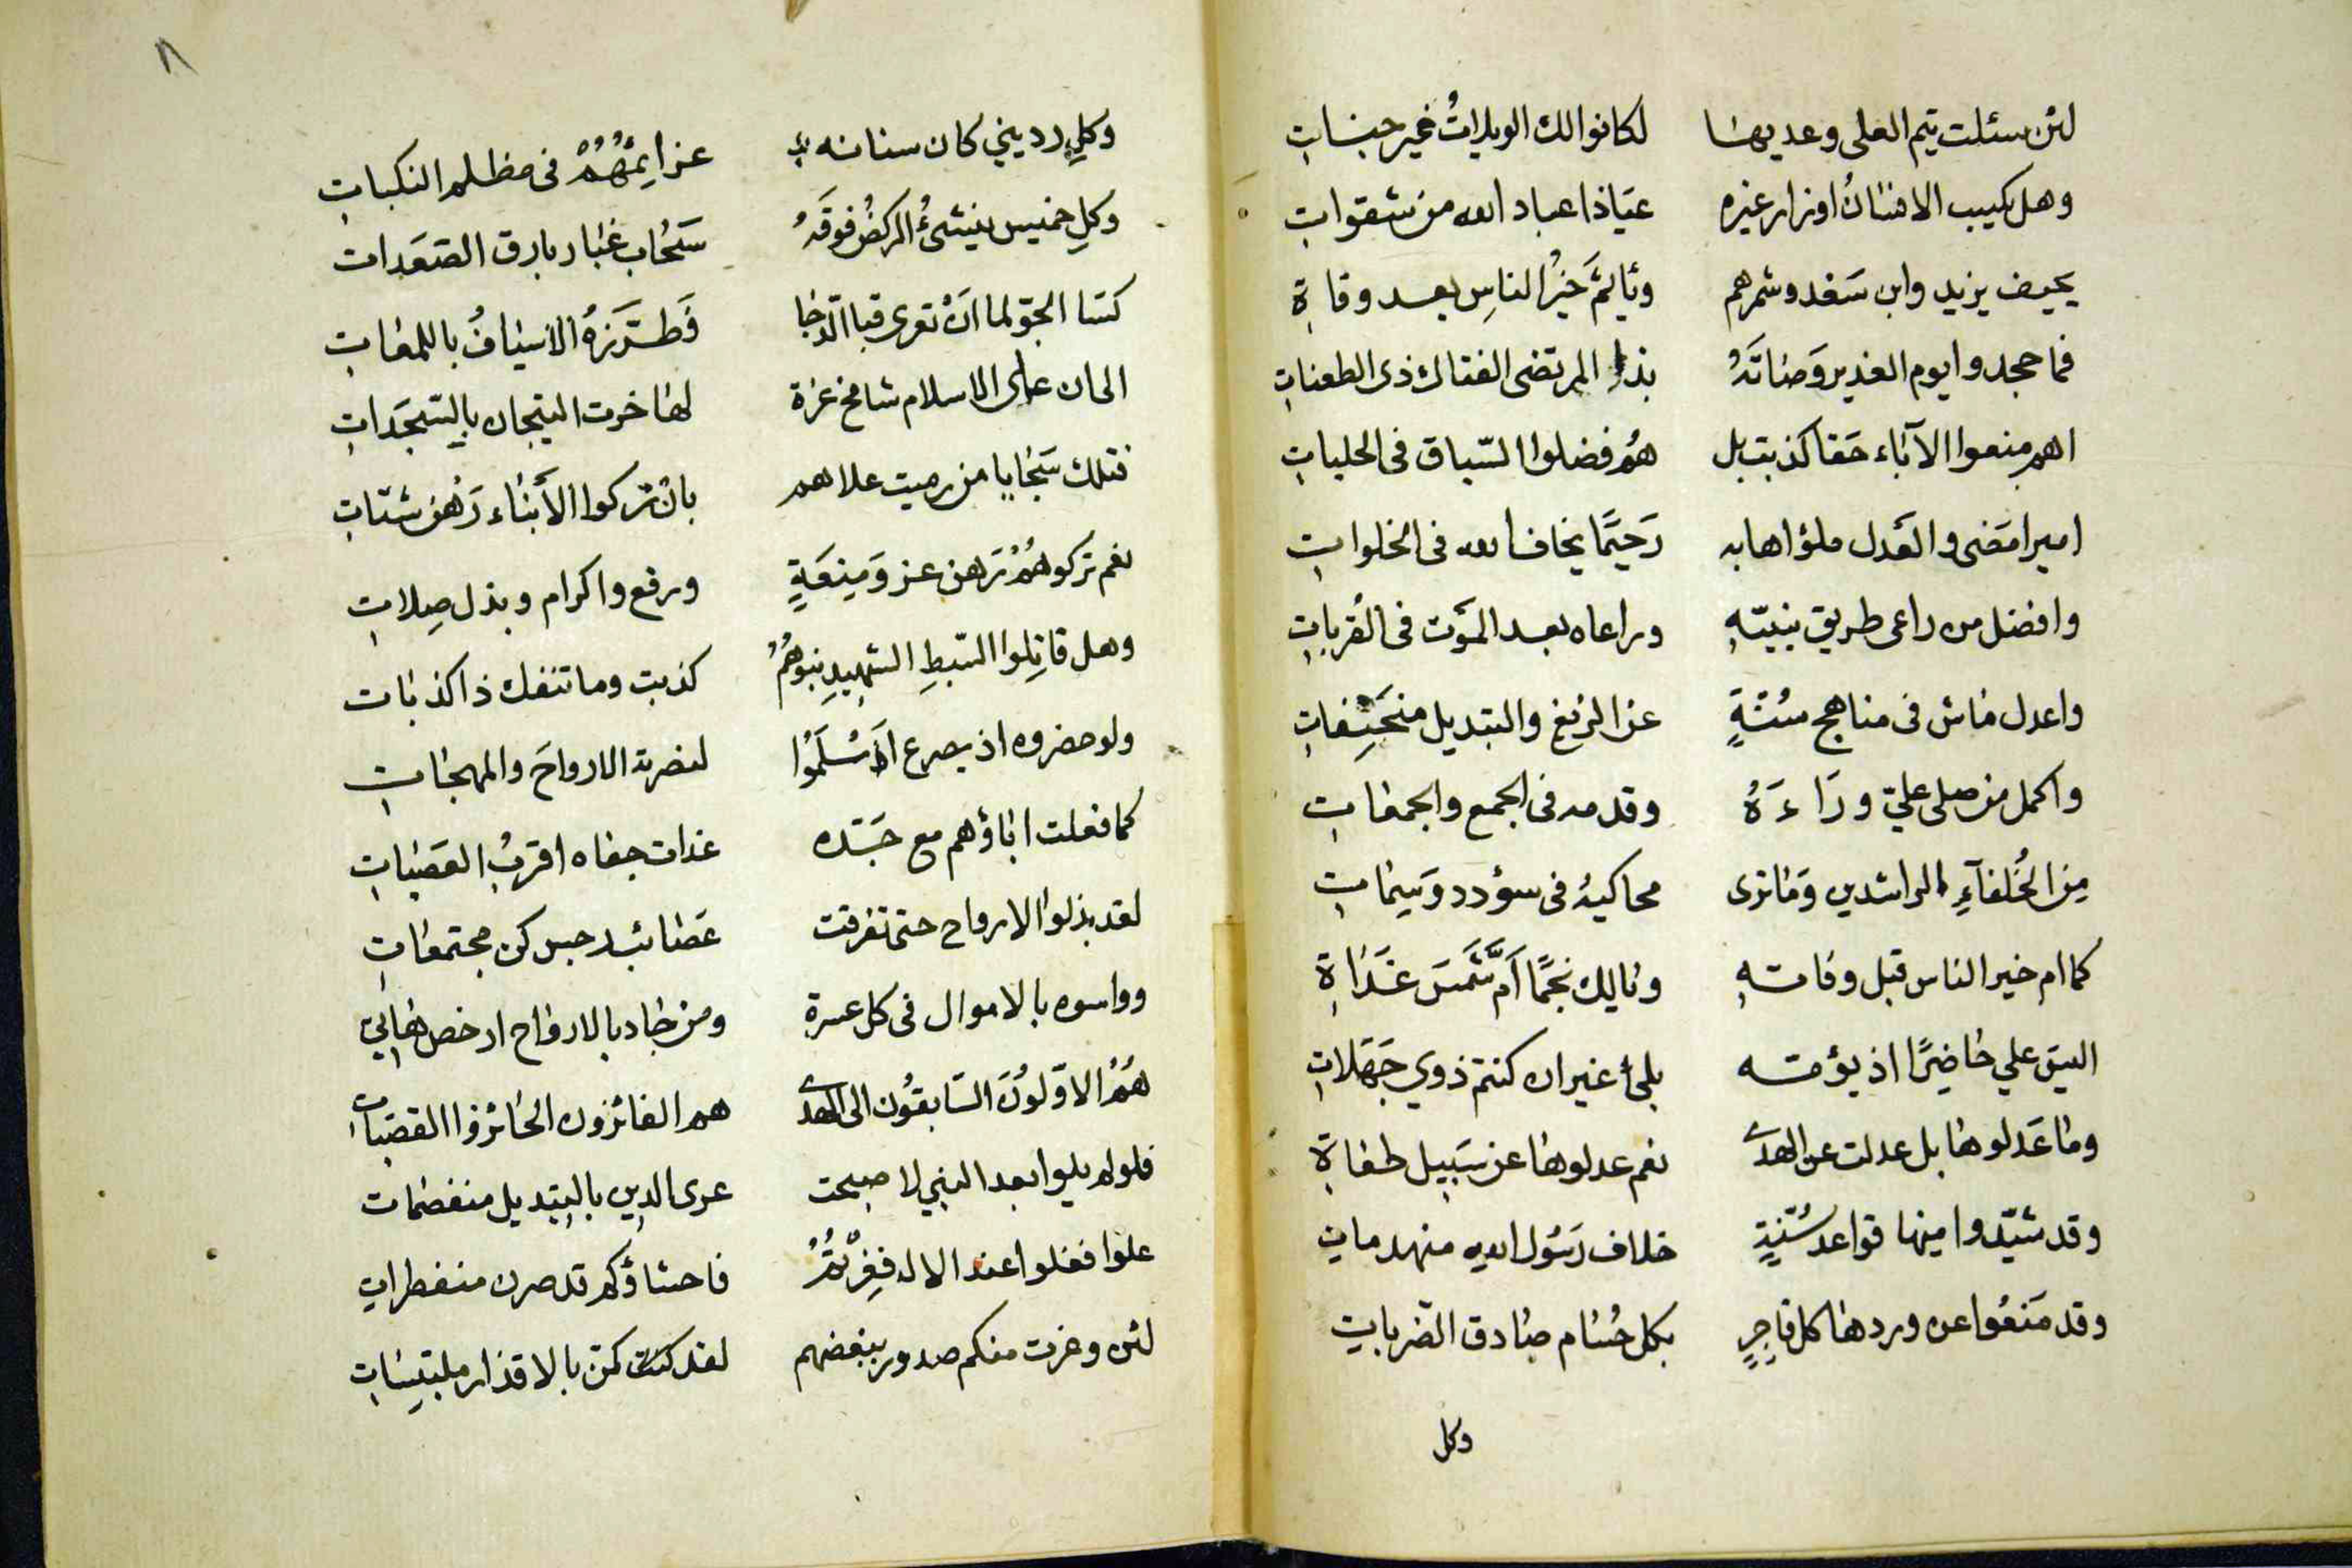 لئن سئلت تيم العلى وعديها لكانوا لك الويلاتُ غير جناتِ
وهل كسب الافنانُ اوزار غيره عياذا عباد الله من شقوات
يحيف يزيد وابن سعد وشمرهم ويأثم خيرُ الناسِ بعد وفاة
فما جحدوا يوم الغدير وصاتَهُ بذا المرتضى الفتاك ذى الطعناتِ
اهم منعوا الآباء حقا كذبت بل هُم فضلوا السّباق فى الحلباتِ
اميرا مضى والعَدل ملؤ اهابه رَحيمًا يخاف الله فى الخلواتِ
وافضل من راعى طريق نبيّهِ وراعاه بعد المَوت فى القُرباتِ
واعدل ماش فى مناهج سُنّةٍ عن الزيغ والتبديل منحَنِفاتِ
واكمل من صلى عليّ ورَاءَهُ وقدمه فى الجمع والجمعاتِ
مِن الخُلفآءِ الراشدين وَما نرى محاكيهُ فى سؤدد وَسِماتِ
كما ام خير الناس قبل وفاتهِ وناليك نجمًا اَمَّ شَمسَ غَدَاةِ
اليسَ علي حاضِرًا اذ يؤمه بلى غير ان كنتم ذوي جَهَلاتِ
وما عَدلوها بل عدلت عن الهدى نعم عدلوها عن سَبيل طغاةِ
وقد شيّدوا منها قواعد سُنّةٍ خلاف رَسُول الله منهدماتِ
وقد مَنعُوا عن وردها كل فاجِرٍ بكل حُسَام صادق الضّرباتِ
وكل
٨
وكلِ رديني كان سنانه عزايِمُهُمْ فى مظلم النكباتِ
وكلِ خميس ينشئُ الركضُ فوقَهُ سَحَاب غبار بارق الصَعَدات
كسا الجوّ لما اَنْ تعرى قبا الدّجا فَطَرَّزهُ الاسيافُ باللمعاتِ
الى ان على الاسلام شامخ عزة لها خرت التيجان بالسّجَداتِ
فتلك سَجايا من رميت علاهم بان تركوا الأبناء رَهن شتاتِ
نعم تركوهُمْ رَهن عز وَمِنعَةٍ ورفع واكرام وبذل صِلاتِ
وهل قاتِلوا السّبطِ الشهِيدِ بنوهُمُ كذبت وما تنفك ذا كذبات
ولو حضروه اذ يصرع اَسْلَمُوا لنصرته الارواحَ والمهجاتِ
كما فعلت اباؤهم مع جَدّه غداة جفاه اقربُ العَصَباتِ
لقد بذلوا الارواح حتى تفرقت عَصَائب رجس كن مجتمعاتِ
وواسوه بالاموال فى كل عسرة ومن جاد بالارواح ارخص هاتي
هُمُ الاوّلُونَ السّابقُون الى الهدى هم الفائزون الحائزوا القصباتِ
فلو لم يلوا بعد النبي لاصبحت عرى الدين بالتبديل منفصمات
علوا فغلوا عند الاله فغِرْتُمُ فاحشاؤكم قد صرن منفطراتِ
لئن وغرت منكم صدور ببغضهم لقد كنّ بالاقذار ملتبسَاتِ